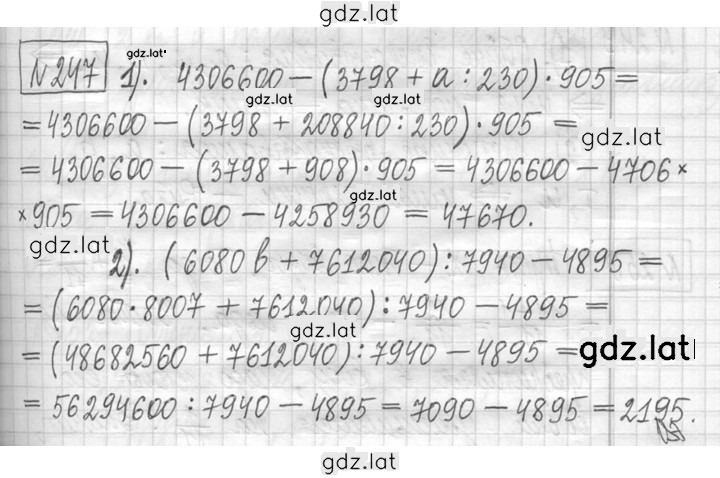 gdz.lat
gdz.lat
№ 247 1). 4306600 − (3798 + a : 230) · 905 =
gdz.lat gdz.lat
= 4306600 − (3798 + 208840 : 230) · 905 =
gdz.lat
= 4306600 − (3798 + 908) · 905 = 4306600 − 4706 ×
gdz.lat
× 905 = 4306600 − 4258930 = 47670.
gdz.lat
2). (6080 b + 7612040) : 7940 − 4895 =
= (6080 · 8007 + 7612040) : 7940 − 4895 =
gdz.lat
= (48682560 + 7612040) : 7940 − 4895 =
gdz.lat
= 56294600 : 7940 − 4895 = 7090 − 4895 = 2195.
gdz.lat